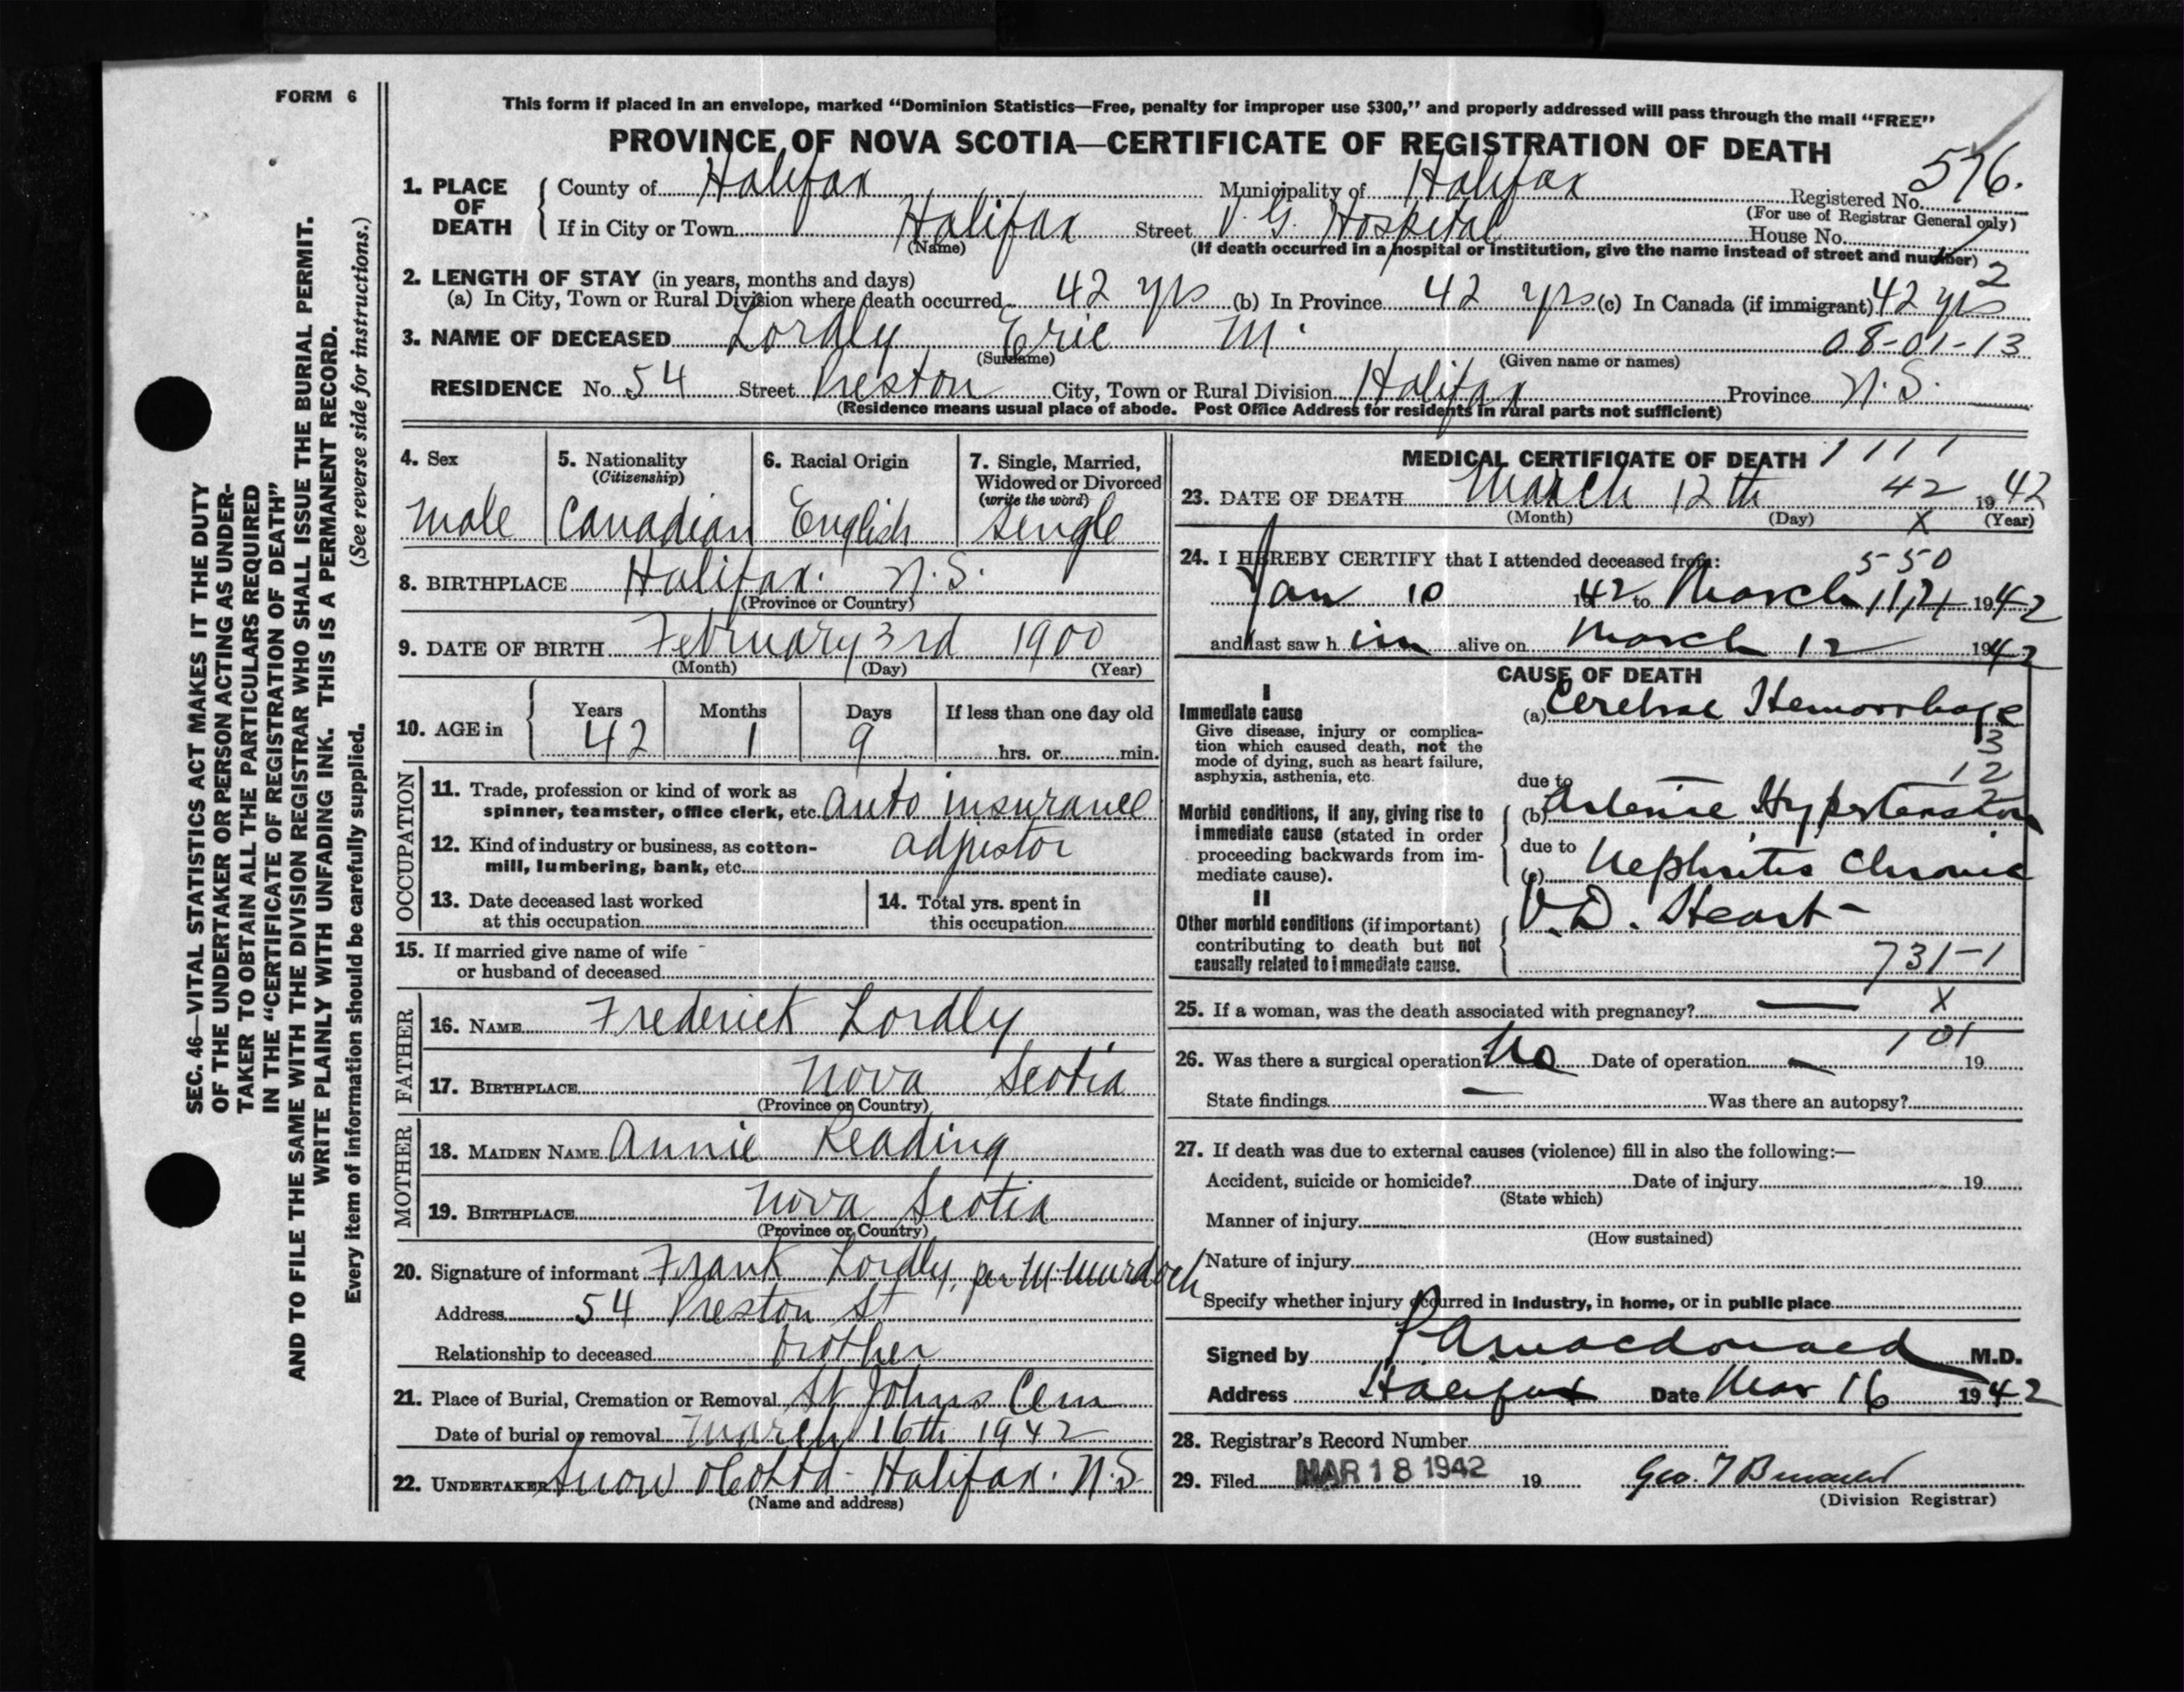 FORM 6
SEC. 46—VITAL STATISTICS ACT MAKES IT THE DUTY
OF THE UNDERTAKER OR PERSON ACTING AS UNDER-
TAKER TO OBTAIN ALL THE PARTICULARS REQUIRED
IN THE "CERTIFICATE OF REGISTRATION OF DEATH"
AND TO FILE THE SAME WITH THE DIVISION REGISTRAR WHO SHALL ISSUE THE BURIAL PERMIT.
WRITE PLAINLY WITH UNFADING INK. THIS IS A PERMANENT RECORD.
Every item of information should be carefully supplied. (See reverse side for instructions.)
This form if placed in an envelope, marked "Dominion Statistics—Free, penalty for improper use $300," and properly addressed will pass through the mail "FREE"
PROVINCE OF NOVA SCOTIA—CERTIFICATE OF REGISTRATION OF DEATH
1. PLACE OF DEATH County of Halifax Municipality of Halifax Registered No. 576.
(For use of Registrar General only)
If in City or Town Halifax Street V. G. Hospital House No.
(Name) (If death occurred in a hospital or institution, give the name instead of street and number)
2
2. LENGTH OF STAY (in years, months and days)
(a) In City, Town or Rural Division where death occurred 42 yrs (b) In Province 42 yrs (c) In Canada (if immigrant) 42 yrs
3. NAME OF DECEASED Lordly Eric M. 08-01-13
(Surname) (Given name or names)
RESIDENCE No. 54 Street Preston City, Town or Rural Division Halifax Province N.S.
(Residence means usual place of abode. Post Office Address for residents in rural parts not sufficient)
4. Sex
male
5. Nationality
(Citizenship)
Canadian
6. Racial Origin
English
7. Single, Married,
Widowed or Divorced
(write the word)
single
8. BIRTHPLACE Halifax. N.S.
(Province or Country)
9. DATE OF BIRTH February 3rd 1900
(Month) (Day) (Year)
10. AGE in Years Months Days If less than one day old
42 1 9 hrs. or min.
OCCUPATION
11. Trade, profession or kind of work as
spinner, teamster, office clerk, etc. auto insurance
12. Kind of industry or business, as cotton- adjustor
mill, lumbering, bank, etc.
13. Date deceased last worked
at this occupation
14. Total yrs. spent in
this occupation
15. If married give name of wife
or husband of deceased
FATHER
16. NAME Frederick Lordly
17. BIRTHPLACE Nova Scotia
(Province or Country)
MOTHER
18. MAIDEN NAME Annie Reading
19. BIRTHPLACE Nova Scotia
(Province or Country)
20. Signature of informant Frank Lordly, per M Murdoch
Address 54 Preston St
Relationship to deceased brother
21. Place of Burial, Cremation or Removal St Johns Cem
Date of burial or removal March 16th 1942
22. UNDERTAKER Snow & Co Ltd - Halifax. N.S
(Name and address)
MEDICAL CERTIFICATE OF DEATH 1 1 1 1
23. DATE OF DEATH March 12th 42 1942
(Month) (Day) X (Year)
24. I HEREBY CERTIFY that I attended deceased from: 550
Jan 10 1942 to March 1942
and last saw him alive on March 12 1942
CAUSE OF DEATH
I
Immediate cause
Give disease, injury or complica-
tion which caused death, not the
mode of dying, such as heart failure,
asphyxia, asthenia, etc.
(a) Cerebral Hemorrhage
3
12
2
due to
Morbid conditions, if any, giving rise to
immediate cause (stated in order
proceeding backwards from im-
mediate cause).
(b) Arterial Hypertension
due to
(c) Nephritis Chronic
II
Other morbid conditions (if important)
contributing to death but not
causally related to immediate cause.
V.D. Heart-
731-1
25. If a woman, was the death associated with pregnancy? — X
101
26. Was there a surgical operation? No Date of operation — 19
State findings — Was there an autopsy?
27. If death was due to external causes (violence) fill in also the following:—
Accident, suicide or homicide? Date of injury 19
(State which)
Manner of injury
(How sustained)
Nature of injury
Specify whether injury occurred in industry, in home, or in public place
Signed by P A Macdonald M.D.
Address Halifax Date Mar 16 1942
28. Registrar's Record Number
29. Filed MAR 18 1942 19 Geo. T
(Division Registrar)